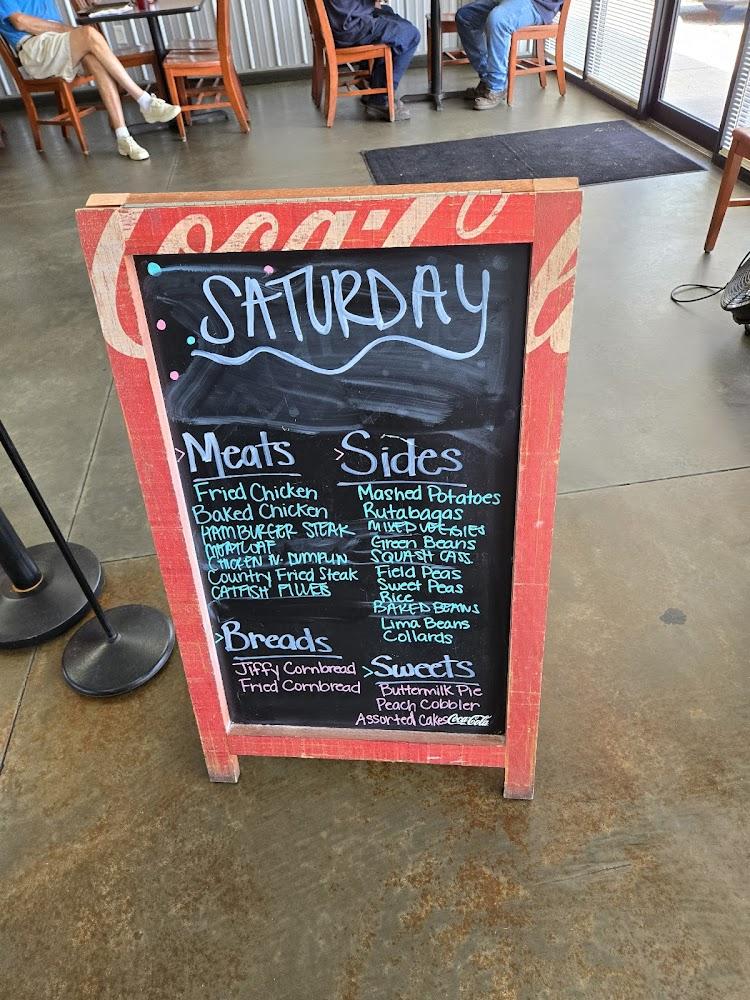 Coca-Cola
SATURDAY
Meats
Fried Chicken
Baked Chicken
HAMBURGER STEAK
MEATLOAF
CHICKEN N. DUMPLIN
Country Fried Steak
CATFISH FILLETS
Sides
Mashed Potatoes
Rutabagas
MIXED VEGGIES
Green Beans
SQUASH CASS.
Field Peas
Sweet Peas
Rice
BAKED BEANS
Lima Beans
Collards
Breads
Jiffy Cornbread
Fried Cornbread
Sweets
Buttermilk Pie
Peach Cobbler
Assorted Cakes
Coca-Cola